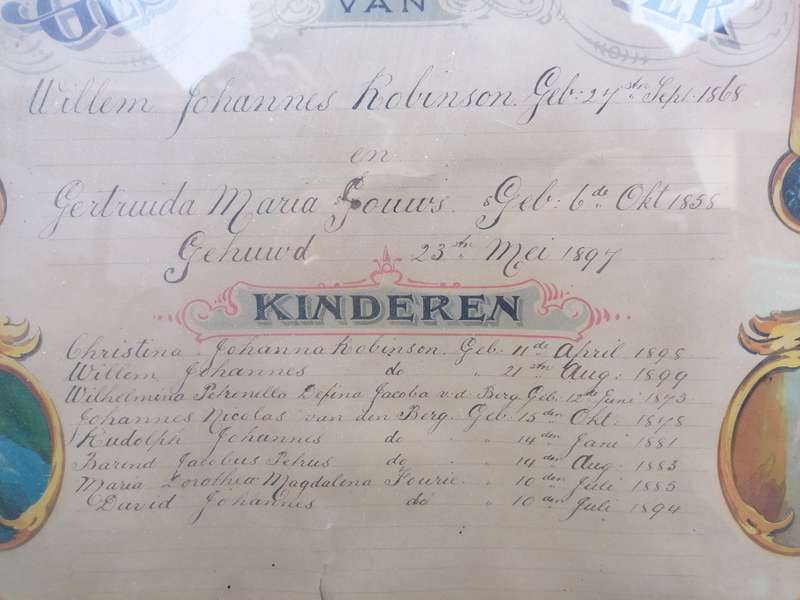 VAN
Willem Johannes Robinson. Geb: 27ste Sept. 1868
en
Gertruida Maria Gouws. Geb: 6de Okt 1858
Gehuwd 23ste Mei 1897
KINDEREN
Christina Johanna Robinson. Geb. 11de April 1898
Willem Johannes do " 21ste Aug: 1899
Wilhelmina Petronella Defina Jacoba v.d. Berg Geb. 12de Juni 1875
Johannes Nicolas van den Berg. Geb. 15den Okt. 1878
Rudolph Johannes do " 14den Juni 1881
Barend Jacobus Petrus do " 14den Aug. 1883
Maria Dorothea Magdalena Fourie. " 10den Juli 1885
David Johannes do " 10den Juli 1894